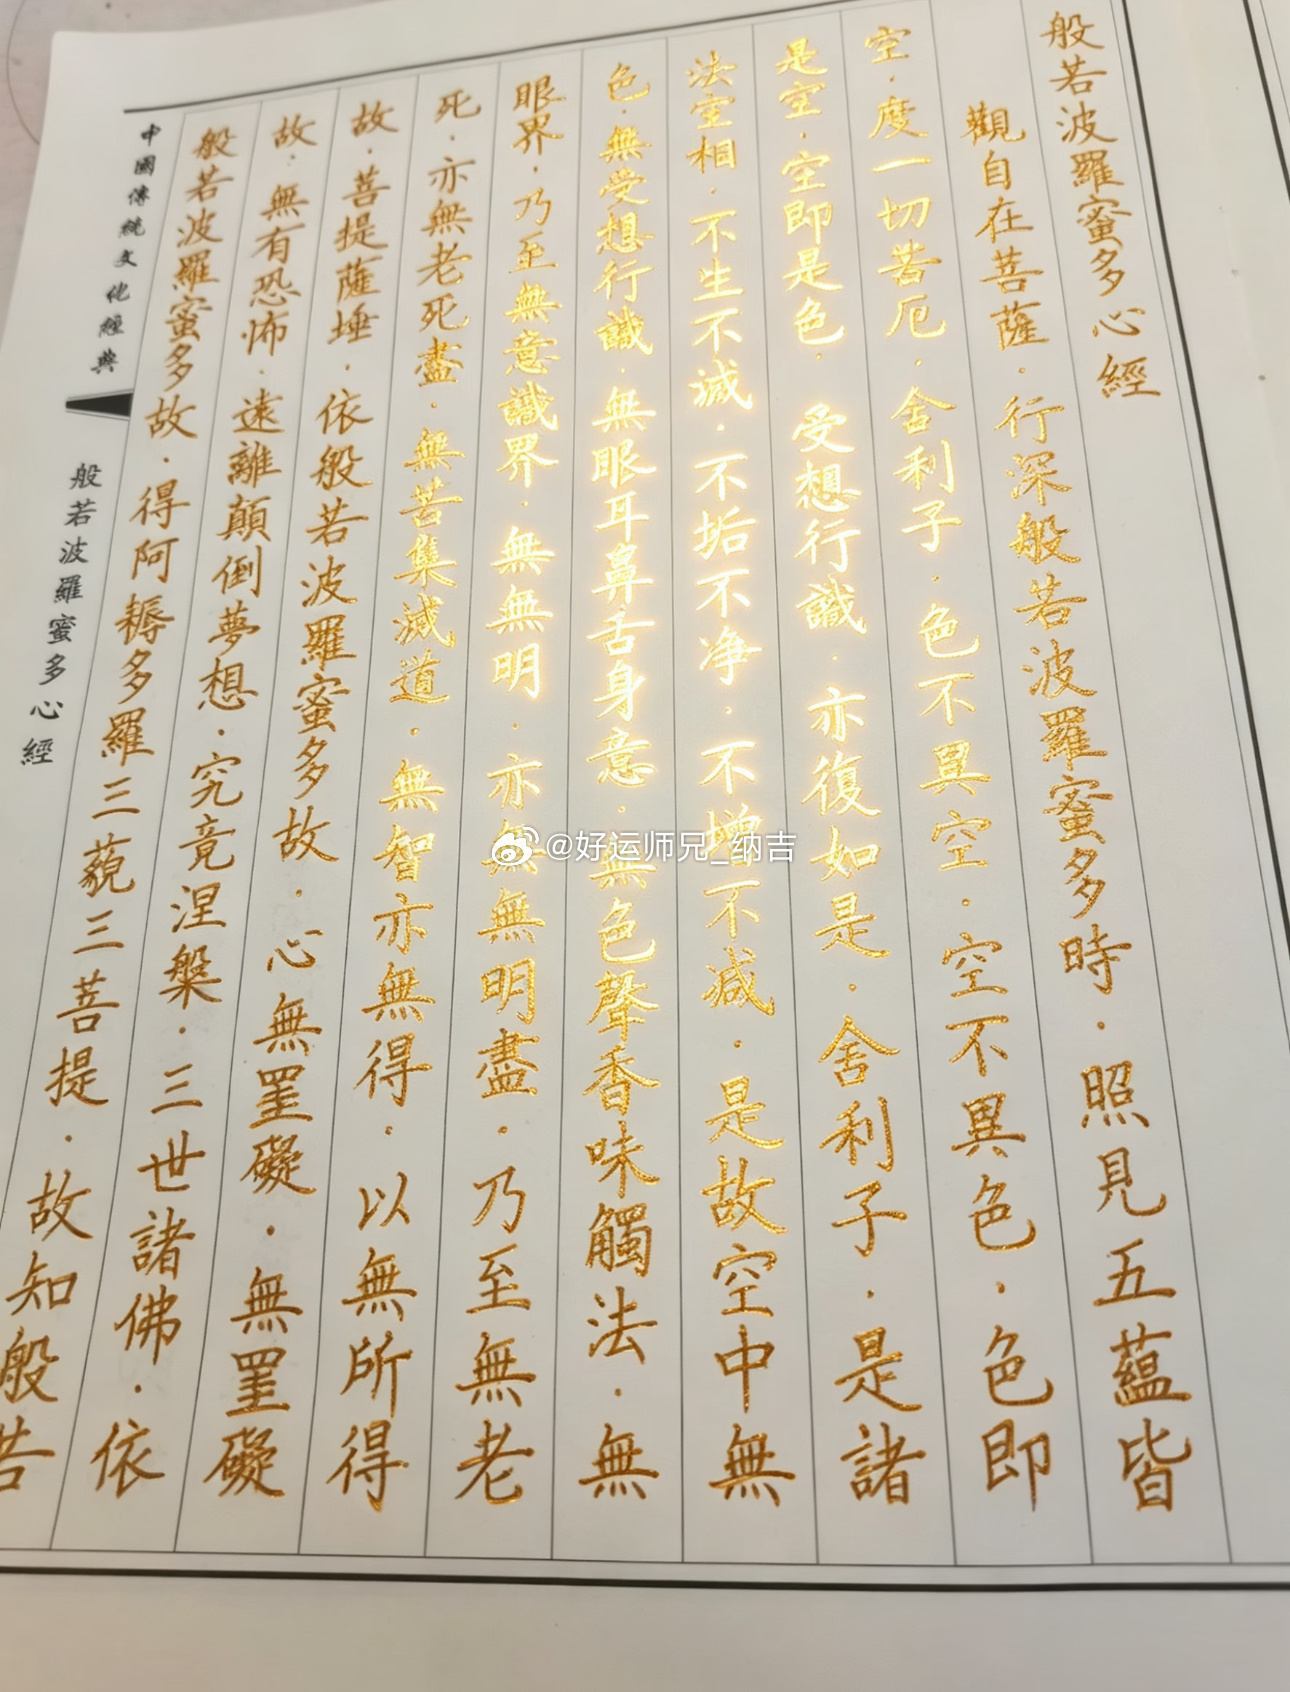 般若波羅蜜多心經
觀自在菩薩·行深般若波羅蜜多時·照見五蘊皆
空·度一切苦厄·舍利子·色不異空·空不異色·色即
是空·空即是色·受想行識·亦復如是·舍利子·是諸
法空相·不生不滅·不垢不净·不增不减·是故空中無
色·無受想行識·無眼耳鼻舌身意·無色聲香味觸法·無
眼界·乃至無意識界·無無明·亦無無明盡·乃至無老
死·亦無老死盡·無苦集滅道·無智亦無得·以無所得
故·菩提薩埵·依般若波羅蜜多故·心無罣礙·無罣礙
故·無有恐怖·遠離顛倒夢想·究竟涅槃·三世諸佛·依
般若波羅蜜多故·得阿耨多羅三藐三菩提·故知般若
中國傳統文化經典
般若波羅蜜多心經
@好运师兄_纳吉